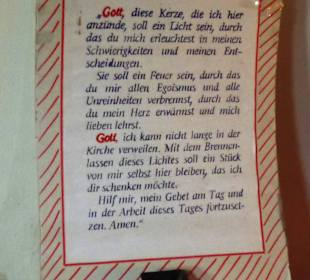 „Gott, diese Kerze, die ich hier
anzünde, soll ein Licht sein, durch
das du mich erleuchtest in meinen
Schwierigkeiten und meinen Ent-
scheidungen.
Sie soll ein Feuer sein, durch das
du mir allen Egoismus und alle
Unreinheiten verbrennst, durch das
du mein Herz erwärmst und mich
lieben lehrst.
Gott, ich kann nicht lange in der
Kirche verweilen. Mit dem Brennen-
lassen dieses Lichtes soll ein Stück
von mir selbst hier bleiben, das ich
dir schenken möchte.
Hilf mir, mein Gebet am Tag und
in der Arbeit dieses Tages fortzuset-
zen. Amen."